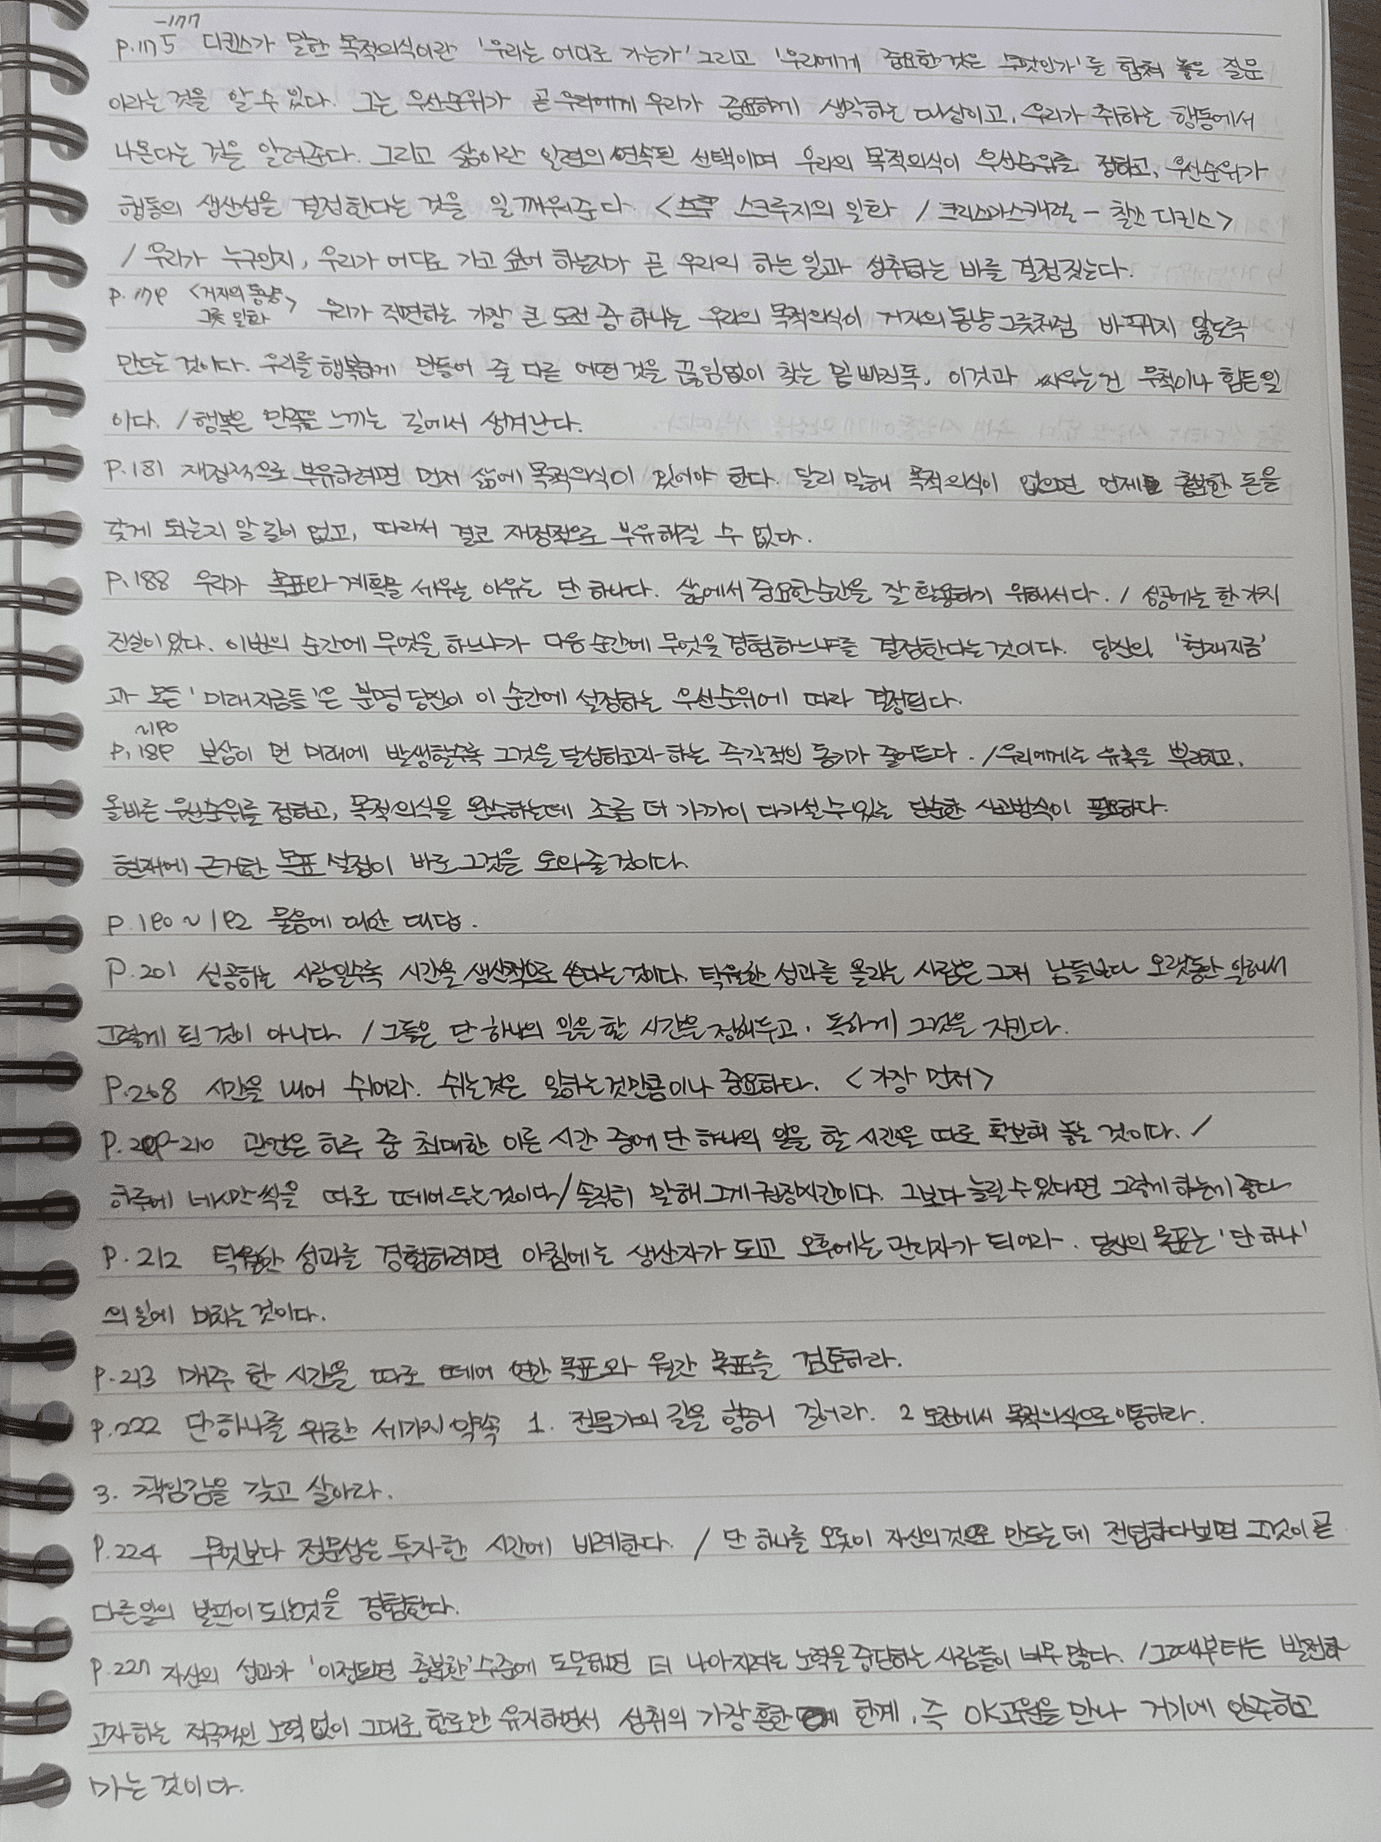 -177
p.175 디킨스가 말한 목적의식이란 '우리는 어디로 가는가' 그리고 '우리에게 중요한 것은 무엇인가'를 합쳐 놓은 질문
이라는 것을 알 수 있다. 그는 우선순위가 곧 우리에게 우리가 중요하게 생각하는 대상이고, 우리가 취하는 행동에서
나온다는 것을 알려준다. 그리고 삶이란 일련의 연속된 선택이며 우리의 목적의식이 우선순위를 정하고, 우선순위가
행동의 생산성을 결정한다는 것을 일깨워준다 <스크루지의 일화 / 크리스마스캐럴 - 찰스 디킨스>
/ 우리가 누구인지, 우리가 어디로 가고 싶어 하는지가 곧 우리의 하는 일과 성취하는 바를 결정짓는다.
p.179 <거지의 동냥
그릇 일화> 우리가 직면하는 가장 큰 도전 중 하나는 우리의 목적의식이 거지의 동냥 그릇처럼 바뀌지 않도록
만드는 것이다. 우리를 행복하게 만들어 줄 다른 어떤 것을 끊임없이 찾는 밑 빠진 독, 이것과 싸우는 건 무척이나 힘든 일
이다. / 행복은 만족을 느끼는 길에서 생겨난다.
p.181 재정적으로 부유하려면 먼저 삶에 목적의식이 있어야 한다. 달리 말해 목적의식이 없으면 언제 충분한 돈을
갖게 되는지 알 길이 없고, 따라서 결코 재정적으로 부유해질 수 없다.
p.188 우리가 목표와 계획을 세우는 이유는 단 하나다. 삶에서 중요한 순간을 잘 활용하기 위해서다. / 성공에는 한 가지
진실이 있다. 이번의 순간에 무엇을 하느냐가 다음 순간에 무엇을 경험하느냐를 결정한다는 것이다. 당신의 '현재지금'
과 모든 '미래지금들'은 분명 당신이 이 순간에 설정하는 우선순위에 따라 결정된다.
~190
p.189 보상이 먼 미래에 발생할수록 그것을 달성하고자 하는 즉각적인 동기가 줄어든다. / 우리에게는 유혹을 뿌리치고,
올바른 우선순위를 정하고, 목적의식을 완수하는데 조금 더 가까이 다가설 수 있는 단순한 사고방식이 필요하다.
현재에 근거한 목표 설정이 바로 그것을 도와줄 것이다.
p.190~192 물음에 대한 대답.
p.201 성공하는 사람일수록 시간을 생산적으로 쓴다는 것이다. 탁월한 성과를 올리는 사람은 그저 남들보다 오랫동안 일해서
그렇게 된 것이 아니다. / 그들은 단 하나의 일을 할 시간을 정해두고, 독하게 그것을 지킨다.
p.208 시간을 내어 쉬어라. 쉬는 것은 일하는 것만큼이나 중요하다. <가장 먼저>
p.209-210 관건은 하루 중 최대한 이른 시간 중에 단 하나의 일을 할 시간을 따로 확보해 놓는 것이다. /
하루에 네시간씩을 따로 떼어 두는 것이다 / 솔직히 말해 그게 권장시간이다. 그보다 늘릴 수 있다면 그렇게 하는게 좋다
p.212 탁월한 성과를 경험하려면 아침에는 생산자가 되고 오후에는 관리자가 되어라. 당신의 목표는 '단 하나'
의 일에 미치는 것이다.
p.213 매주 한 시간을 따로 떼어 연간 목표와 월간 목표를 검토하라.
p.222 단 하나를 위한 세가지 약속 1. 전문가의 길을 향해 걸어라. 2 도전에서 목적의식으로 이동하라.
3. 책임감을 갖고 살아라.
p.224 무엇보다 전문성은 투자한 시간에 비례한다. / 단 하나를 오롯이 자신의 것으로 만드는 데 전념하다보면 그것이 곧
다른일의 발판이 되는것을 경험한다.
p.227 자신의 성과가 '이정도면 충분한' 수준에 도달하면 더 나아지려는 노력을 중단하는 사람들이 너무 많다. / 그때부터는 발전하
고자 하는 적극적인 노력 없이 그대로 현상만 유지하면서 성취의 가장 흔한 한계, 즉 OK고원을 만나 거기에 안주하고
마는 것이다.